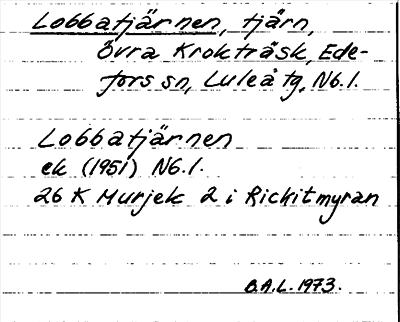 Lobbatjärnen, tjärn,
Övra Kroktråsk, Ede-
fors sn, Luleå tg, Nb.l.
Lobbatjärnen
ek (1951) Nb.l.
26 K Murjek 2 i Rickitmyran
B.A.L. 1973.